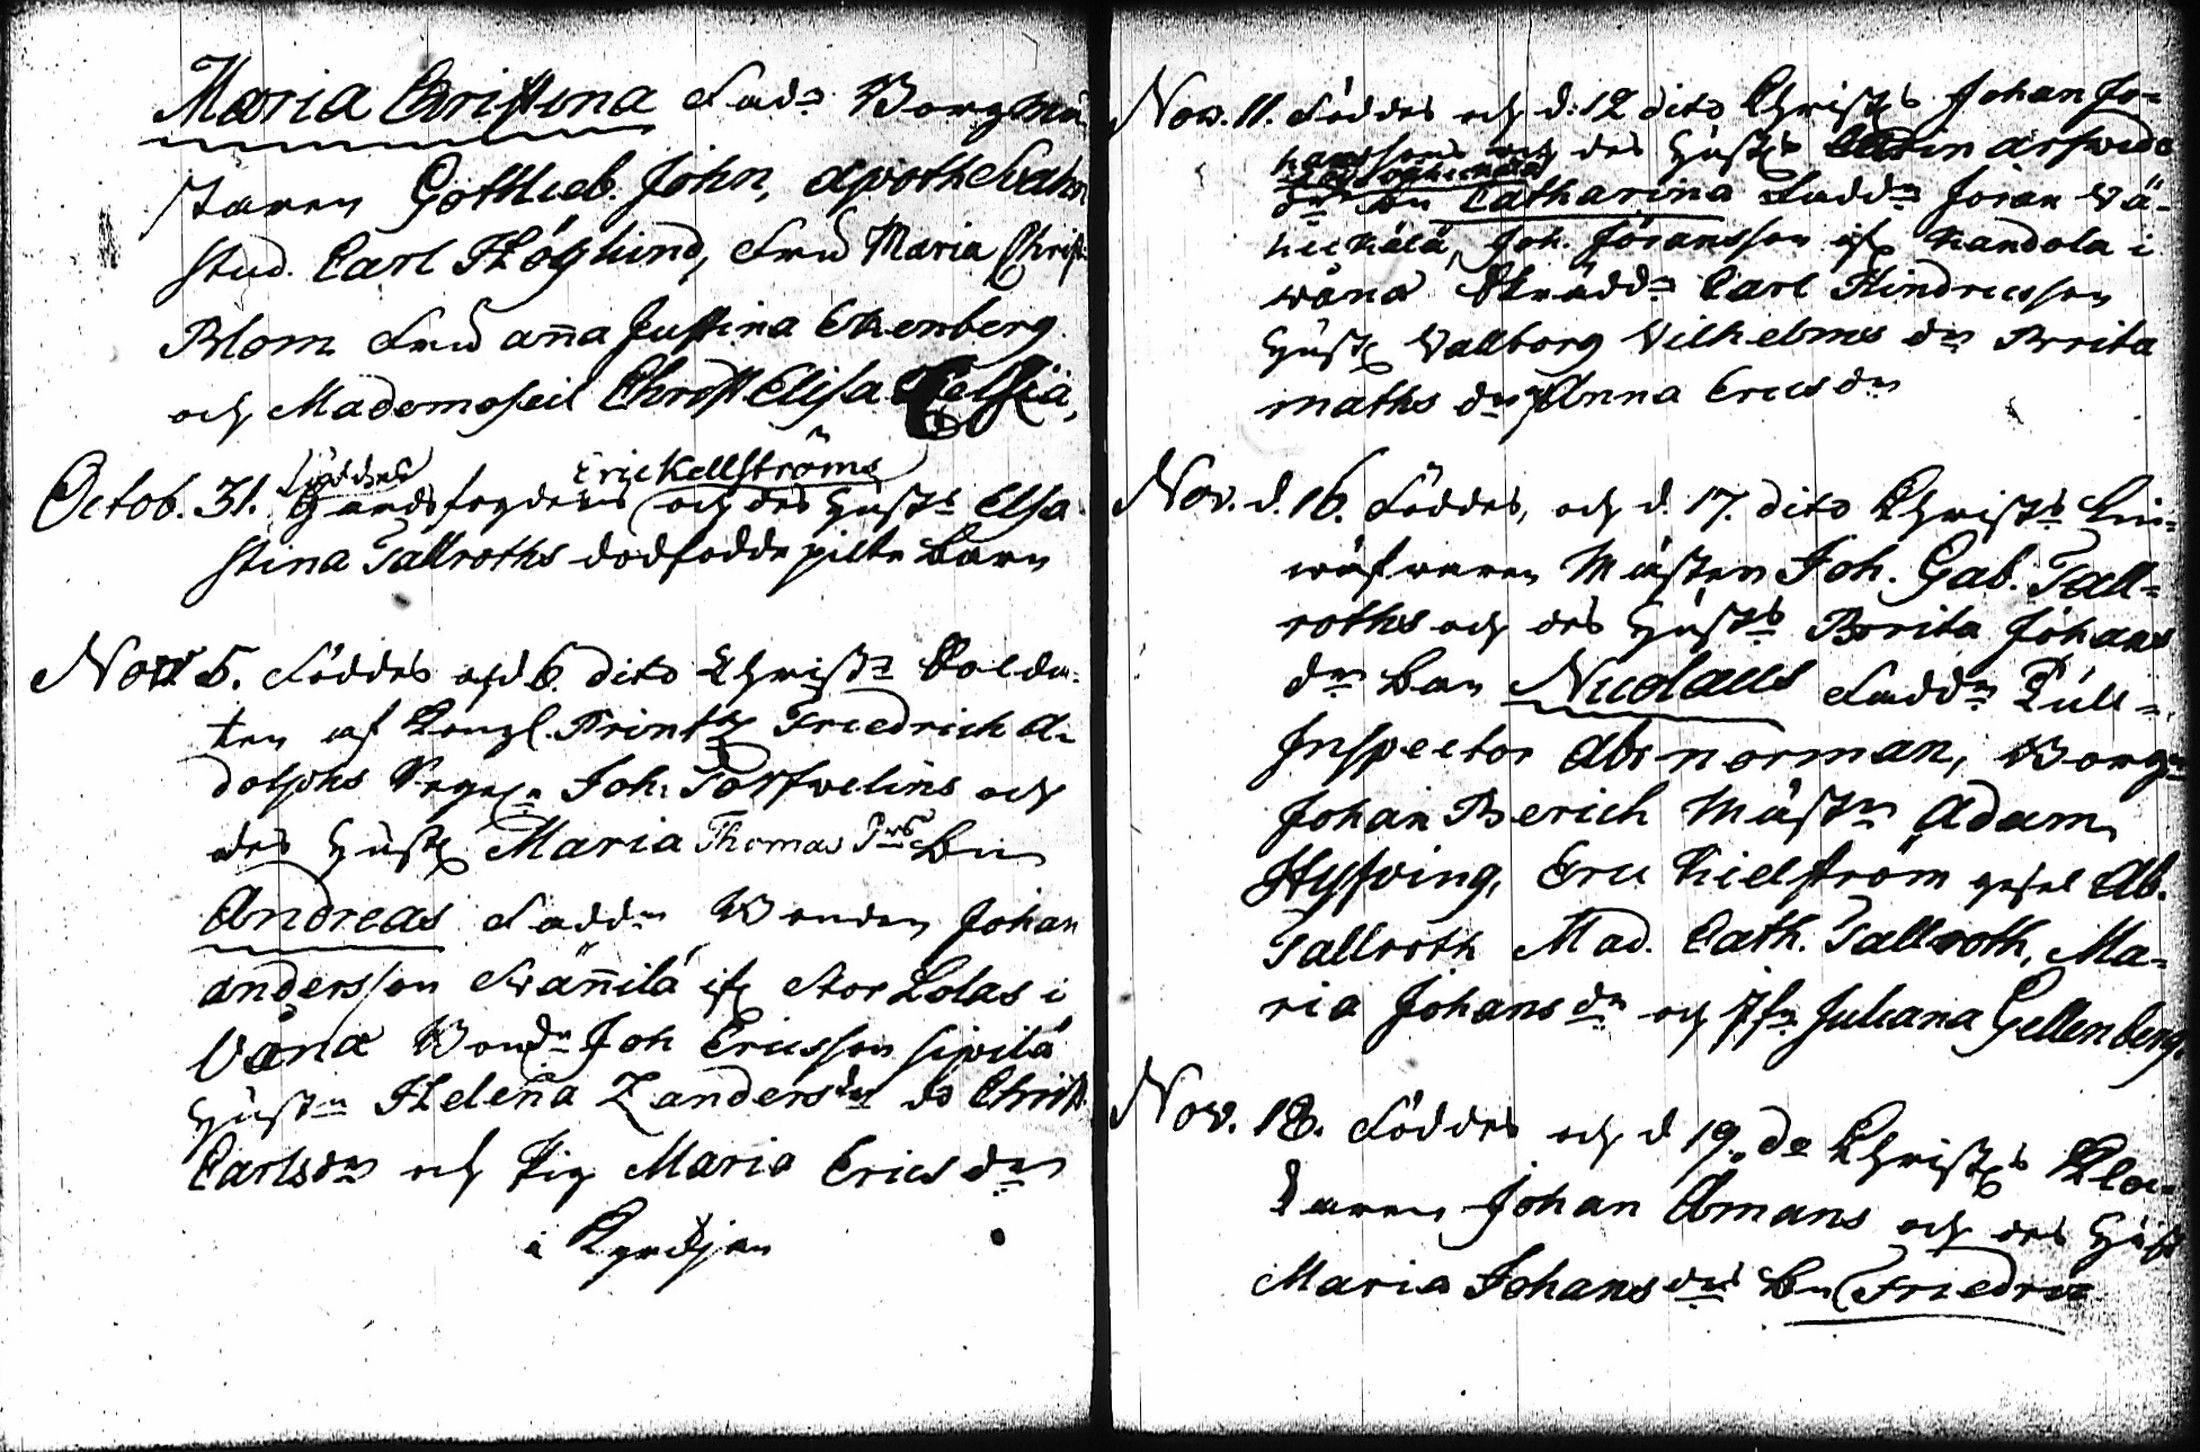 Maria Christina Fadd. Borgmä-
staren Gottlieb John, Apothekaren
stud. Carl Höglund, Fru Maria Christ.
Blom Fru Anna Justina Ekenberg
och Mademoseil Christ Elisa
Octob. 31. Föddes Eric Kellströms
Landsfogdens och des Hust. Elsa
stina Tallroths dödfödde pilte Barn
Nov. 5. Föddes och d 6. dito Christ. Solda-
ten af Kongl. Printz Friedrich A-
dolphs Joh. och
des Hust. Maria Thomas drs Bn
Andreas Faddr Bonden Johan
andersson Swännilä if. Stor Lolas i
Vånå Bond. Joh Ericsson sipilä
Hustr. Helena Zandersdr do Christ.
Carlsdr och Pig Maria Ericsdr
i
Nov. 11. Föddes och d. 12 dito Christ. Johan Jo-
hanssons och des Hust. Carin arfwids
dr Bn Catharina Faddr Jöran
Joh. Göransson if. Kandola i
wånå Skrädd. Carl Hindricsson
Hust. Vallborg Vilhelms dr Brita
maths dr Anna Ericsdr
Nov. d. 16. Föddes, och d. 17. dito Christ. Lin-
wäfwaren Mästaren Joh. Gab. Tall-
roths och des Hust. Brita Johans
dr Bn Nicolaus Faddr Tull-
Inspector Abr norman, Borg.
Johan Berich Mäst. Adam
Eric Kielström gesel Ab.
Tallroth Mad. Cath. Tallroth, Ma-
ria Johansdr och Jfr. Juliana Gellenberg.
Nov. 18. Föddes och d 19. do Christ. Kloc-
karen Johan Åmans och des Hust
Maria Johansdrs Bn Friedric